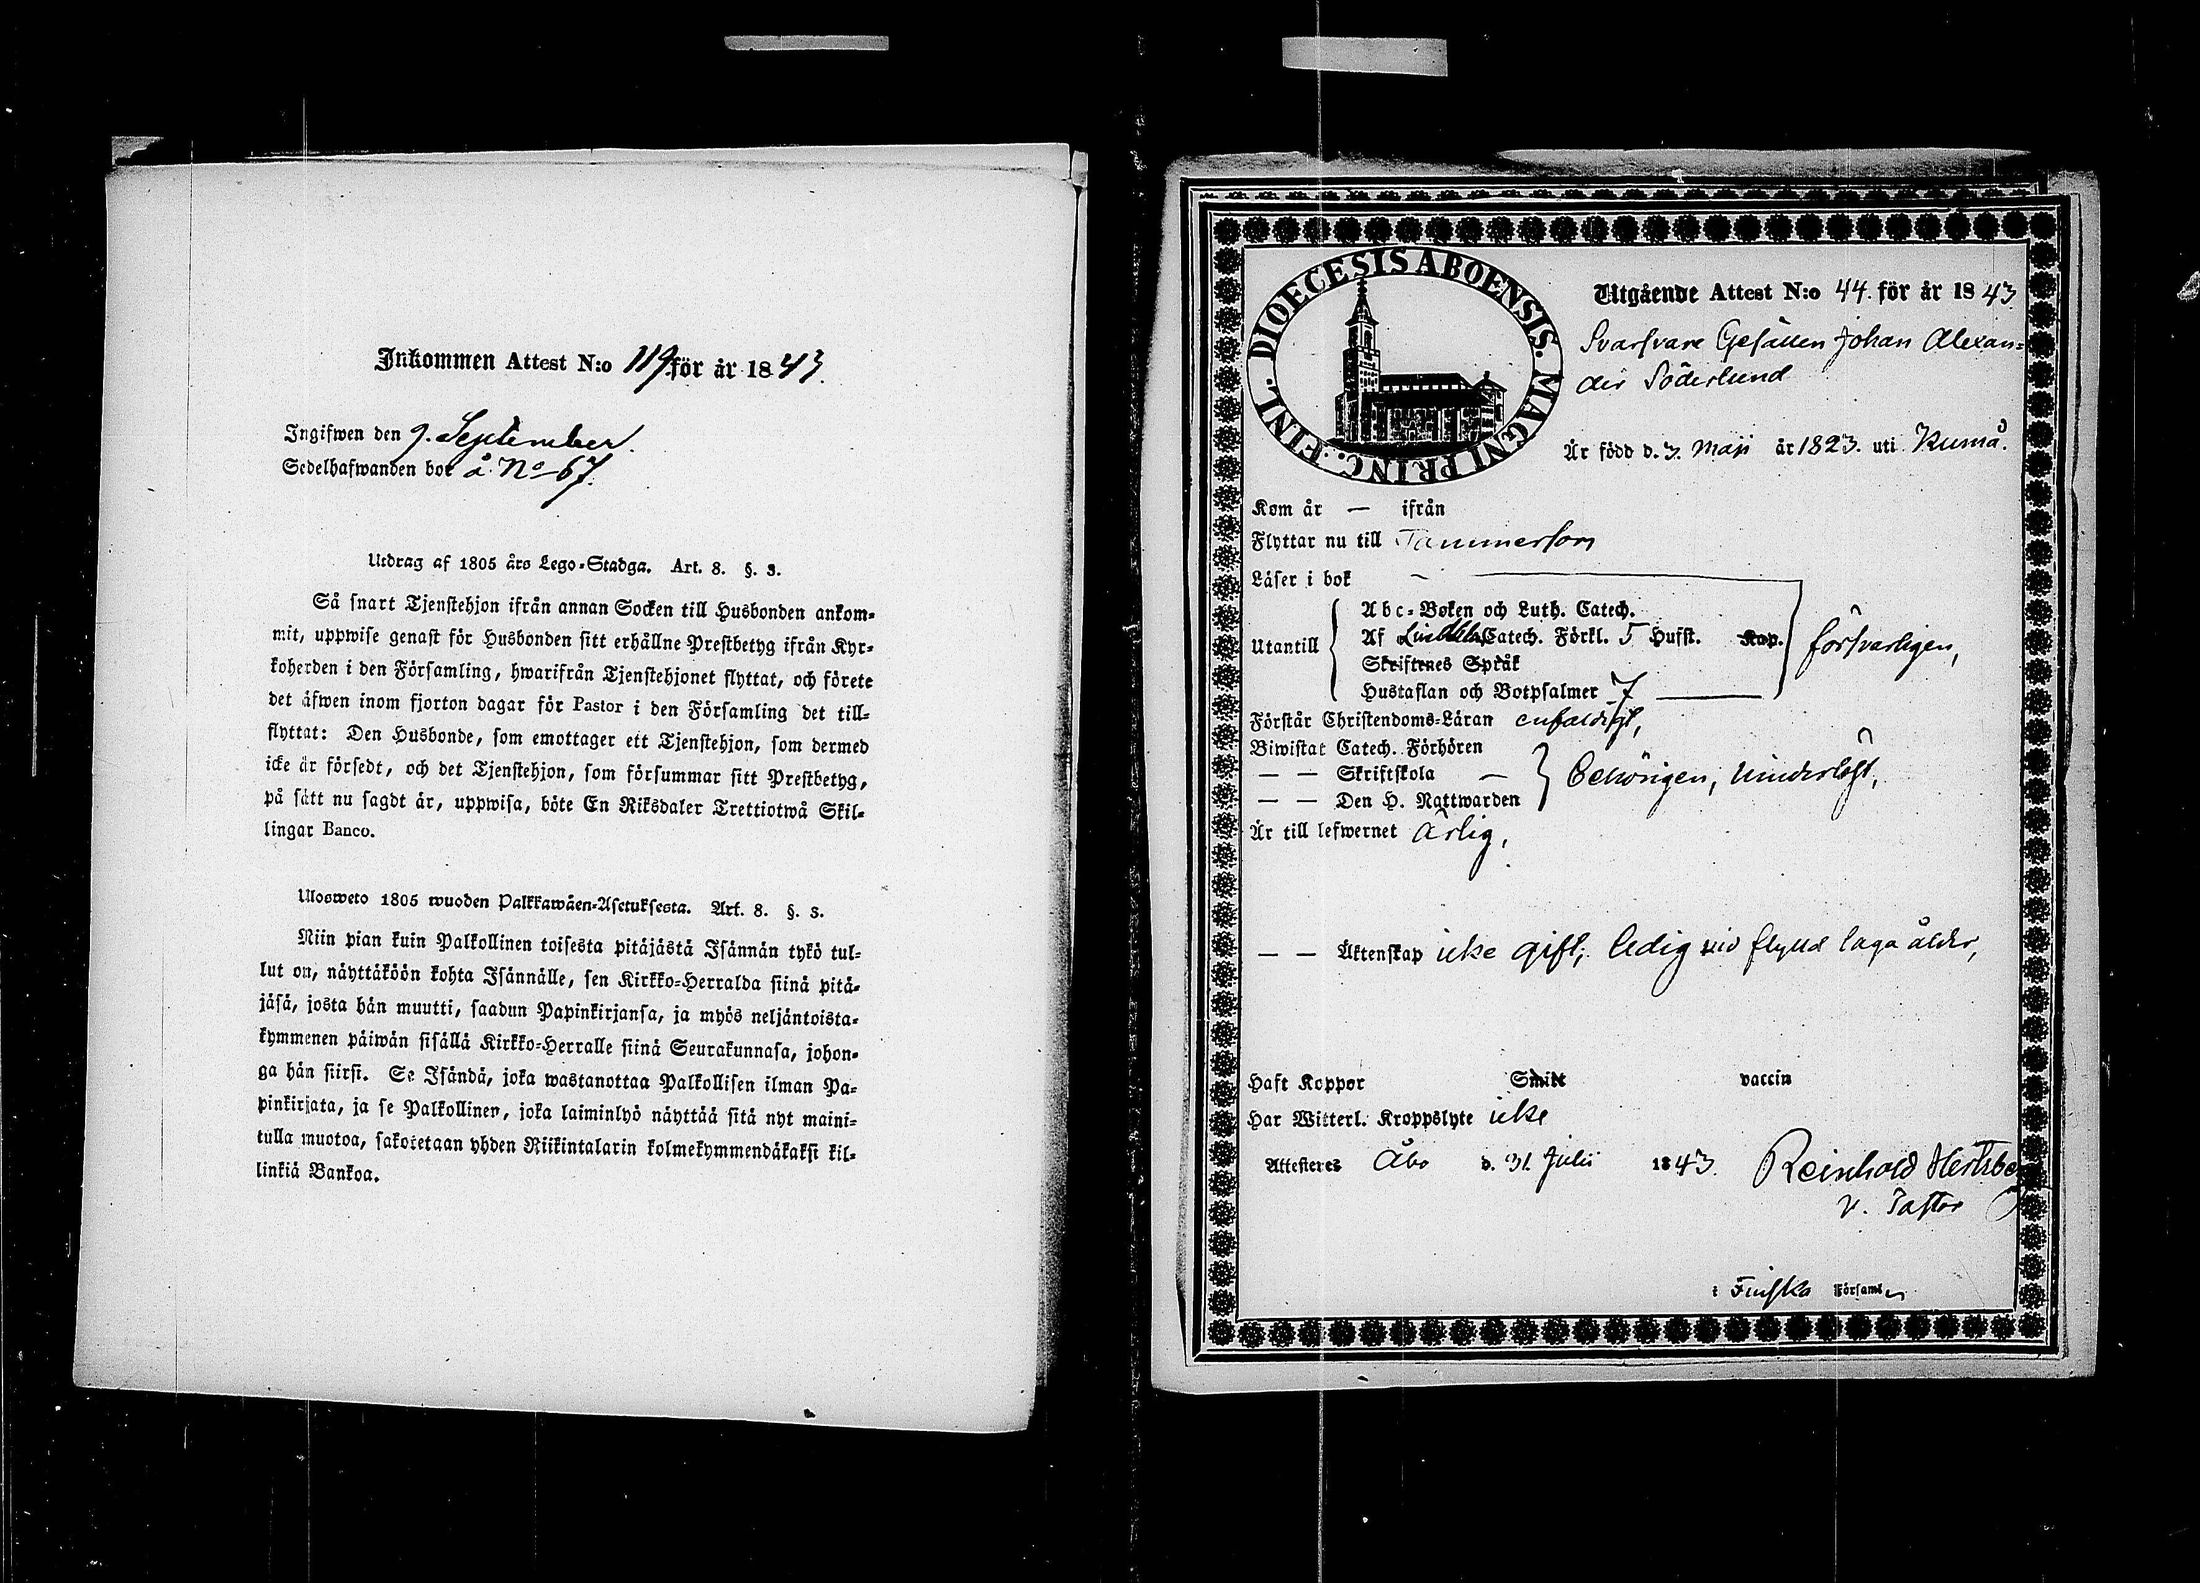 Inkommen Attest N:o 119. för år 1843.
Ingifwen den 9. September.
Sedelhafwanden bor å No 67.
Utdrag af 1805 års Lego-Stadga. Art. 8. §. 3.
Så snart Tjenstehjon ifrån annan Socken till Husbonden ankom-
mit, uppwise genast för Husbonden sitt erhållne Prestbetyg ifrån Kyr-
koherden i den Församling, hwarifrån Tjenstehjonet flyttat, och förete
det äfwen inom fjorton dagar för Pastor i den Församling det till-
flyttat: Den Husbonde, som emottager ett Tjenstehjon, som dermed
icke är försedt, och det Tjenstehjon, som försummar sitt Prestbetyg,
på sätt nu sagdt är, uppwisa, böte En Riksdaler Trettiotwå Skil-
lingar Banco.
Ulosweto 1805 wuoden Palkkawäen-Asetuksesta. Art. 8. §. 3.
Niin pian kuin Palkollinen toisesta pitäjästä Isännän tykö tul-
lut on, näyttäköön kohta Isännälle, sen Kirkko-Herralda siinä pitä-
jäsä, josta hän muutti, saadun Papinkirjansa, ja myös neljäntoista-
kymmenen päiwän sisällä Kirkko-Herralle siinä Seurakunnasa, johon-
ga hän siirsi. Se Isändä, joka wastanottaa Palkollisen ilman Pa-
pinkirjata, ja se Palkollinen, joka laiminlyö näyttää sitä nyt maini-
tulla muotoa, sakotetaan yhden Riikintalarin kolmekymmendäkaksi kil-
linkiä Bankoa.
DIOECESIS ABOENSIS. MAGNI PRINC. FINL.
Utgående Attest N:o 44. för år 1843
Svarfvare Gesällen Johan Alexan=
der Söderlund
Är född d. 3. Maji år 1823. uti Kumå.
Kom år — ifrån
Flyttar nu till Tammerfors
Läser i bok —
Utantill
Abc-Boken och Luth. Catech.
Af Catech. Förkl. 5 Hufst. Kap.
Skriftenes Språk
Hustaflan och Botpsalmer 7
försvarligen,
Förstår Christendoms-Läran enfaldigt,
Biwistat Catech. Förhören
— — Skriftskola —
— — Den H. Nattwarden
behörigen, hinderlöst,
Är till lefwernet ärlig,
— — Äktenskap icke gift, ledig vid fylld laga ålder,
Haft Koppor Smitt vaccin
Har Witterl. Kroppslyte icke
Attesteres Åbo d. 31 Julii 1843. Reinhold
v. Pastor
i Finska Församl.